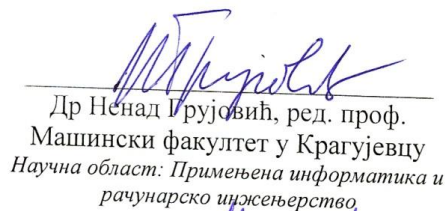 Др Ненад Грујовић, ред. проф.
Машински факултет у Крагујевцу
Научна област: Примењена информатика и
рачунарско инжењерство